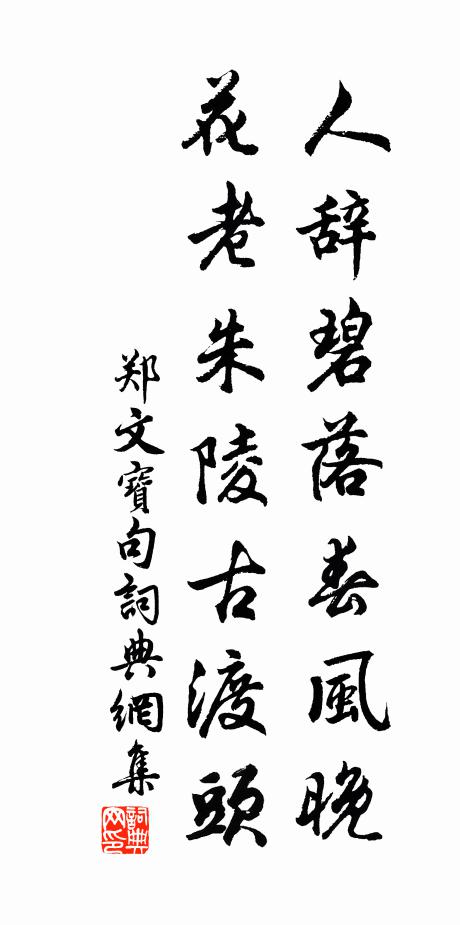 人辞碧落春風晚
花老朱陵古渡頭
郑文寶句詞典網集
詞典网印